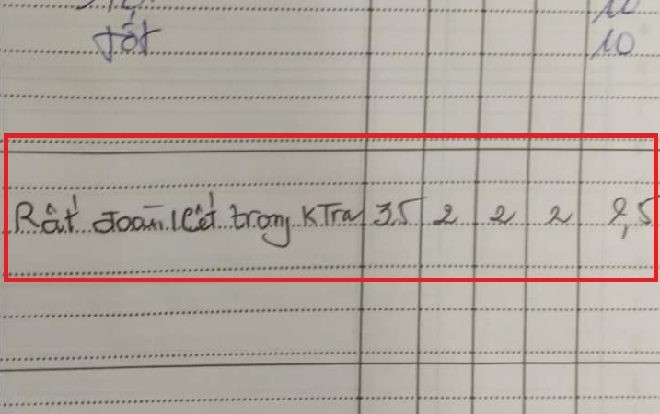 10
Tốt 10
Rất đoàn kết trong KTra 3,5 2 2 2 9,5